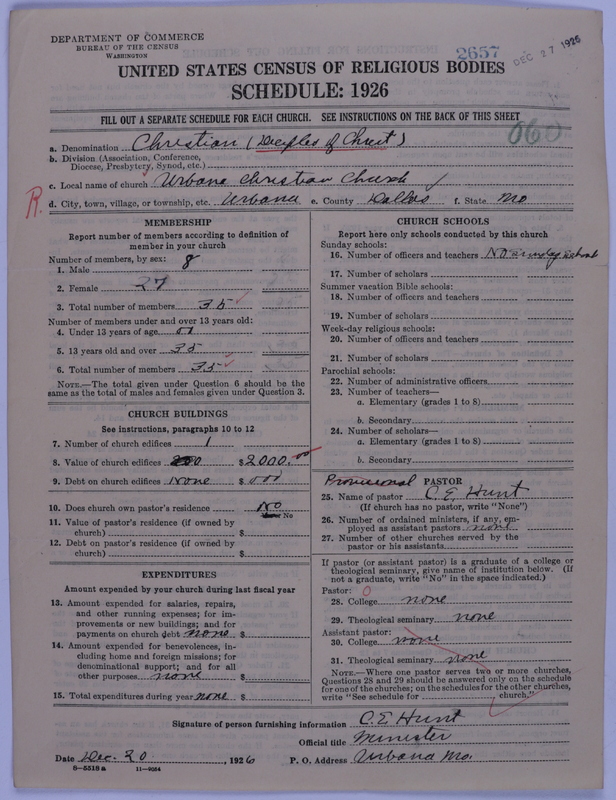 DEPARTMENT OF COMMERCE
BUREAU OF THE CENSUS
WASHINGTON
2657
DEC 27 1926
UNITED STATES CENSUS OF RELIGIOUS BODIES
SCHEDULE: 1926
FILL OUT A SEPARATE SCHEDULE FOR EACH CHURCH. SEE INSTRUCTIONS ON THE BACK OF THIS SHEET
060
a. Denomination Christian (Deciples of Christ)
b. Division (Association, Conference, Diocese, Presbytery, Synod, etc.)
c. Local name of church Urbana Christian Church
R.
d. City, town, village, or township, etc. Urbana e. County Dallas f. State Mo
MEMBERSHIP
Report number of members according to definition of
member in your church
Number of members, by sex:
1. Male 8
2. Female 27
3. Total number of members 35
Number of members under and over 13 years old:
4. Under 13 years of age 00
5. 13 years old and over 35
6. Total number of members 35
NOTE.—The total given under Question 6 should be
same as the total of males and females given under Question 3.
CHURCH BUILDINGS
See instructions, paragraphs 10 to 12
7. Number of church edifices 1
8. Value of church edifices $2000.00
9. Debt on church edifices None $ 000
10. Does church own pastor's residence No
No
11. Value of pastor's residence (if owned by
church) $
12. Debt on pastor's residence (if owned by
church) $
EXPENDITURES
Amount expended by your church during last fiscal year
13. Amount expended for salaries, repairs,
and other running expenses; for im-
provements or new buildings; and for
payments on church debt none $
14. Amount expended for benevolences, in-
cluding home and foreign missions; for
denominational support; and for all
other purposes none $
15. Total expenditures during year none $
CHURCH SCHOOLS
Report here only schools conducted by this church
Sunday schools:
16. Number of officers and teachers No sunday school
17. Number of scholars
Summer vacation Bible schools:
18. Number of officers and teachers
19. Number of scholars
Week-day religious schools:
20. Number of officers and teachers
21. Number of scholars
Parochial schools:
22. Number of administrative officers
23. Number of teachers—
a. Elementary (grades 1 to 8)
b. Secondary
24. Number of scholars—
a. Elementary (grades 1 to 8)
b. Secondary
Provisional PASTOR
25. Name of pastor C. E. Hunt
(If church has no pastor, write "None")
26. Number of ordained ministers, if any, em-
ployed as assistant pastors none
27. Number of other churches served by the
pastor or his assistants
If pastor (or assistant pastor) is a graduate of a college or
theological seminary, give name of institution below. (If
not a graduate, write "No" in the space indicated.)
Pastor: 0
28. College none
29. Theological seminary none
Assistant pastor:
30. College none
31. Theological seminary none
NOTE.—Where one pastor serves two or more churches,
Questions 28 and 29 should be answered only on the schedule
for one of the churches; on the schedules for the other churches,
write "See schedule for church."
Signature of person furnishing information C. E. Hunt
Official title Minister
Date Dec. 20, 1926 P. O. Address Urbana Mo.
8—5518 a 11—9064